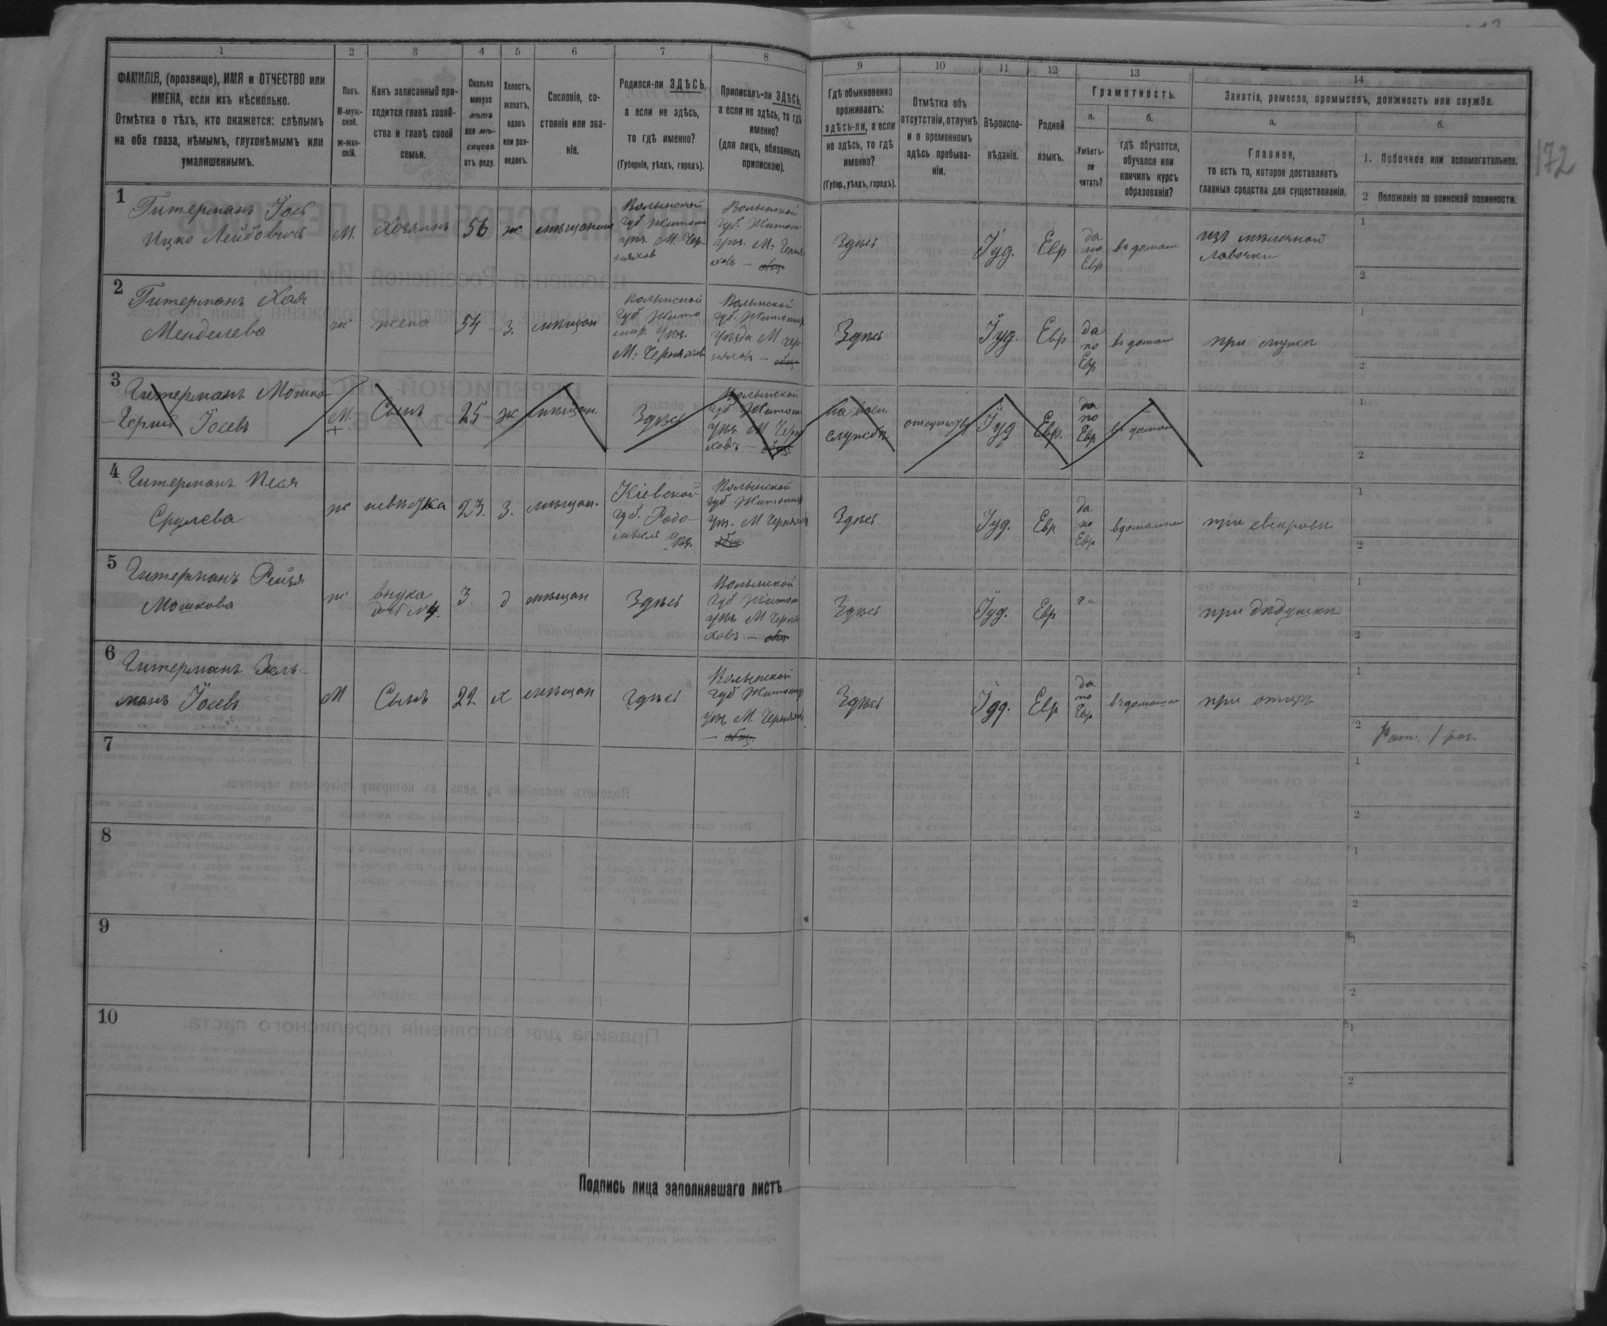 1 2 3 4 5 6 7 8 9 10 11 12 13 14
ФАМИЛІЯ, (прозвище), ИМЯ и ОТЧЕСТВО или
ИМЕНА, если ихъ нѣсколько.
Отмѣтка о тѣхъ, кто окажется: слѣпымъ
на оба глаза, нѣмымъ, глухонѣмымъ или
умалишеннымъ.
Полъ.
М-муж-
ской.
ж-жен-
скій.
Какъ записанный при-
ходится главѣ хозяй-
ства и главѣ своей
семьи.
Сколько
минуло
лѣтъ
или мѣ-
сяцевъ
отъ роду.
Холостъ,
женатъ,
вдовъ
или раз-
веденъ.
Сословіе, со-
стояніе или зва-
ніе.
Родился-ли ЗДѢСЬ,
а если не здѣсь,
то гдѣ именно?
(Губернія, уѣздъ, городъ).
Приписанъ-ли ЗДѢСЬ,
а если не здѣсь, то гдѣ
именно?
(для лицъ, обязанныхъ
припискою).
Гдѣ обыкновенно
проживаетъ:
ЗДѢСЬ-ЛИ, а если
не здѣсь, то гдѣ
именно?
(Губер., уѣздъ, городъ).
Отмѣтка объ
отсутствіи, отлучкѣ
и о временномъ
здѣсь пребыва-
ніи.
Вѣроиспо-
вѣданіе.
Родной
языкъ.
Грамотность.
а.
Умѣетъ-
ли
читать?
б.
гдѣ обучается,
обучался или
кончилъ курсъ
образованія?
Занятіе, ремесло, промыселъ, должность или служба.
а.
Главное,
то есть то, которое доставляетъ
главныя средства для существованія.
б.
1. Побочное или вспомогательное.
2 Положеніе по воинской повинности.
172
1
Гитерманъ Іось
Ицко Лейбовичъ
М.
хозяинъ
56
ж
мѣщанинъ
Волынской
губ. Житом
М. Чер-
няхов
Волынской
губ. Житом
М. Черня
ховъ — общ.
Здѣсь
Іуд.
Евр
да
по
Евр
въ домаш
изъ мелочной
лавочки
1
2
2
Гитерманъ Хая
Менделева
ж
жена
54
з.
мѣщан
Волынской
губ. Жито
мир
М. Черняхов
Волынской
губ. Житомир
уѣзда М Чер
няховъ — общ.
Здѣсь
Іуд.
Евр
да
по
Евр
въ домаш
при мужѣ
1
2
3
Гитерманъ Мошко
Іосевъ
М.
Сынъ
25
ж
мѣщан.
Здѣсь
Волынской
губ Житом
М Черня
ховъ — общ.
на воен.
службѣ
Іуд
Евр.
да
по
Евр
въ домаш
1
2
4
Гитерманъ Песя
Срулева
ж
невѣстка
23.
з.
мѣщан.
Кіевской
губ. Радо-
мысль
Волынской
губ Житомир
М Черняхов
общ.
Здѣсь
Іуд.
Евр.
да
по
Евр.
въ домашн
при свекровѣ
1
2
5
Гитерманъ Рейзя
Мошкова
ж
внука
№ 4.
3
д
мѣщан
Здѣсь
Волынской
губ Житом
М Черня
ховъ — общ.
Здѣсь
Іуд.
Евр
при дѣдушкѣ
1
2
6
Гитерманъ Зель-
манъ Іосевъ
М
Сынъ
22.
х
мѣщан
здѣсь
Волынской
губ Житомир
М. Черняхов
— общ.
Здѣсь
Іуд.
Евр
да
по
Евр
въ домашн
при отцѣ
1
2
7
1
2
8
1
2
9
1
2
10
1
2
Подпись лица заполнявшаго листъ